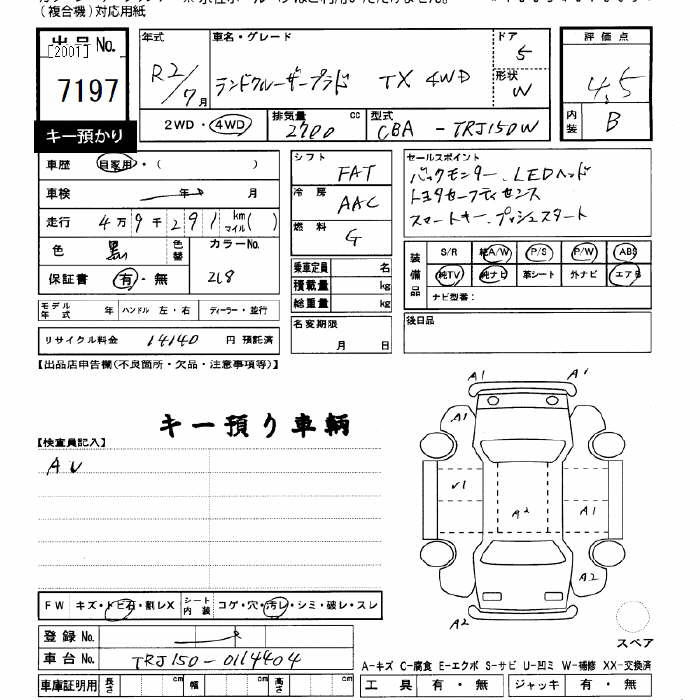 (複合機)対応用紙
出品No.
[2001]
7197
キー預かり
年式 R2/7月
車名・グレード ランドクルーザープラド TX 4WD
ドア 5
形状 W
評価点 4.5
内装 B
2WD・4WD
排気量 2700 cc
型式 CBA-TRJ150W
車歴 自家用・( )
車検 年 月
走行 4万9千291 km マイル( )
色 黒 色替 カラーNo. 218
保証書 有・無
モデル年式 年 ハンドル 左・右 ディーラー・並行
リサイクル料金 14140 円 預託済
シフト FAT
冷房 AAC
燃料 G
乗車定員 名
積載量 kg
総重量 kg
名変期限 月 日
セールスポイント
バックモニター、LEDヘッド
トヨタセーフティセンス
スマートキー、プッシュスタート
装備品
S/R 純A/W P/S P/W ABS
純TV 純ナビ 革シート 外ナビ エアB
ナビ型番:
後日品
【出品店申告欄(不良箇所・欠品・注意事項等)】
キー預り車輌
【検査員記入】
AU
A1 A1
A1
U1 A2 A1
A2
A2
スペア
FW キズ・トビ石・割レX シート内装 コゲ・穴・汚レ・シミ・破レ・スレ
登録No.
車台No. TRJ150-0114404
車庫証明用 長さ cm 幅 cm 高さ cm
A-キズ C-腐食 E-エクボ S-サビ U-凹ミ W-補修 XX-交換済
工具 有・無 ジャッキ 有・無